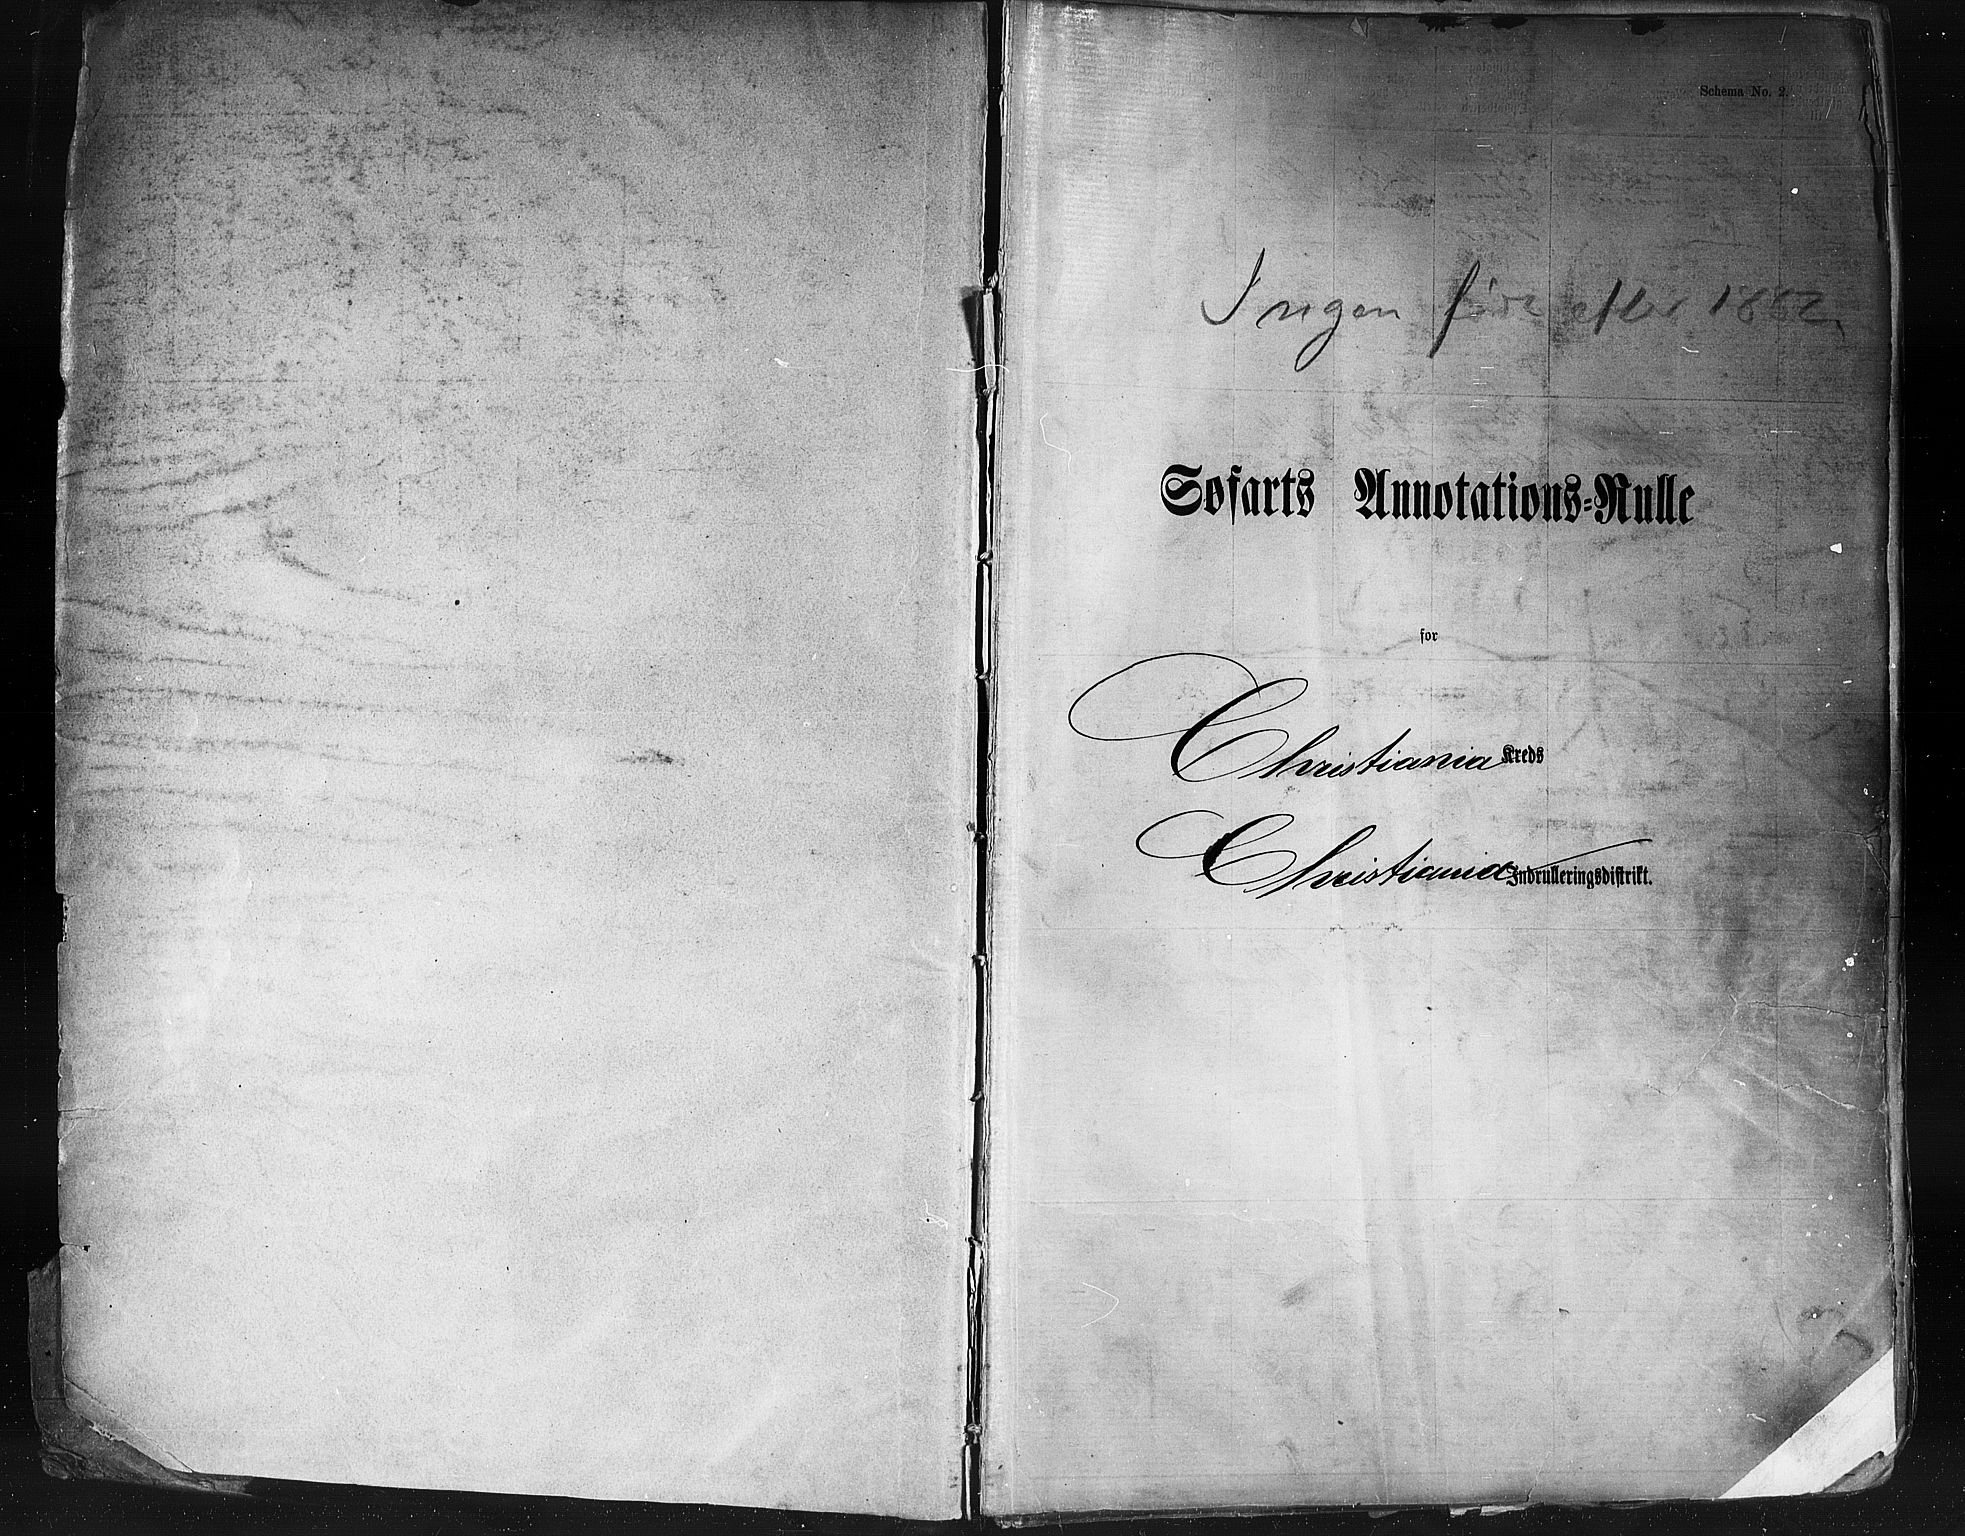 Schema No. 2.
Ingen før efter 1882.
Søfarts Annotations-Rulle
for
Christiania Kreds
Christiania Indrulleringsdistrikt.